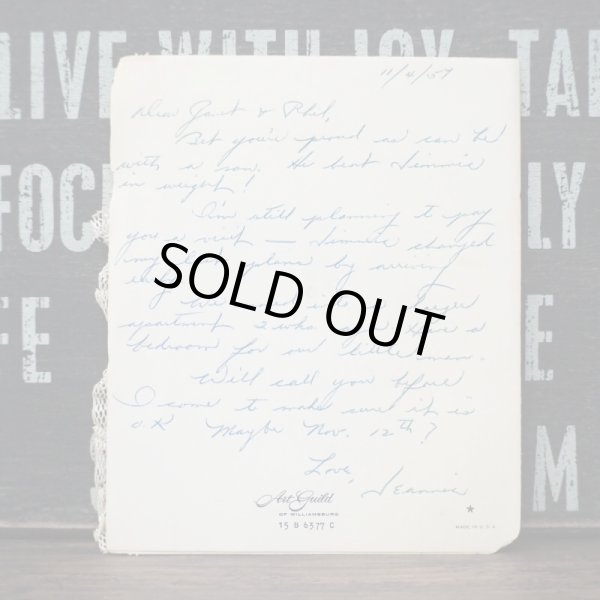 LIVE WITH JOY TAI
FOC LY
FE E
M
11/4/57
Dear Janet & Phil,
Bet you're proud as can be
with a son. He beat Jimmie
in weight!
I'm still planning to pay
you a visit — Jimmie changed
my plans by arriving
apartment 2 a
bedroom for our little man.
Will call you before
I come to make sure it is
O.K Maybe Nov. 12th?
Love,
Jeannie
SOLD OUT
Art Guild
OF WILLIAMSBURG
15 B 6577 C
MADE IN U.S.A.